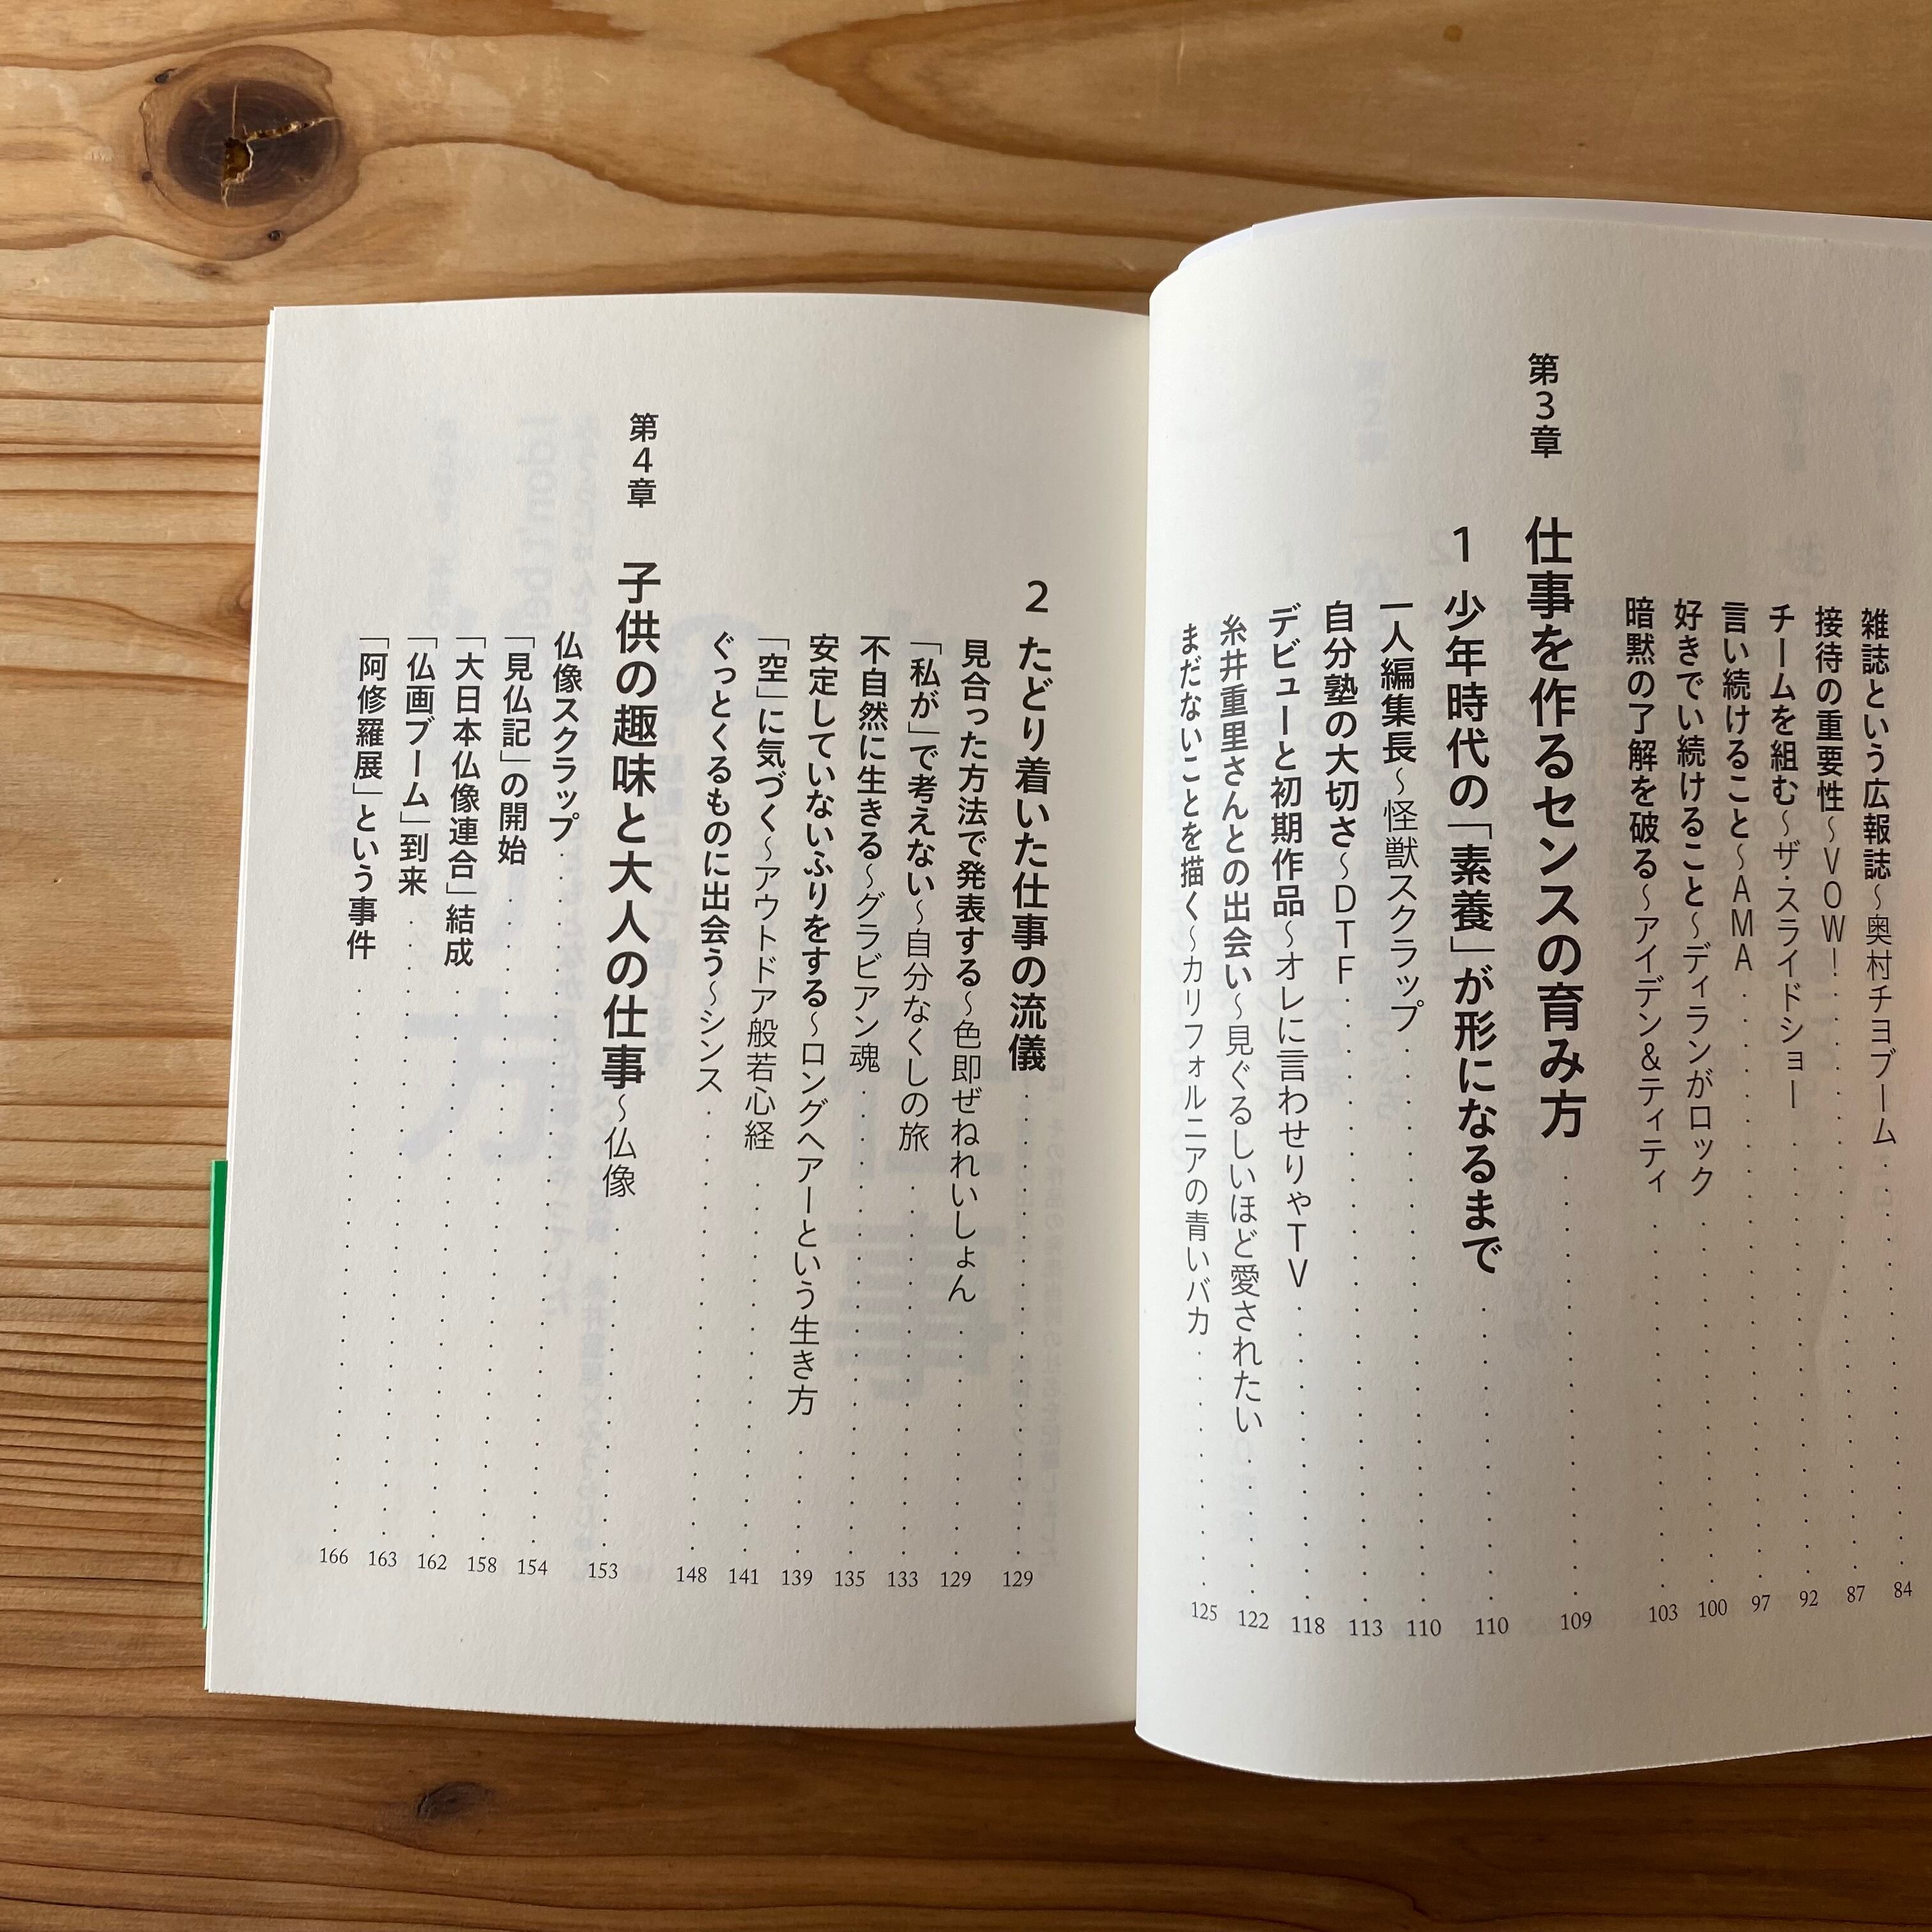 雑誌という広報誌〜奥村チヨブーム 84
接待の重要性〜VOW! 87
チームを組む〜ザ・スライドショー 92
言い続けること〜AMA 97
好きでい続けること〜ディランがロック 100
暗黙の了解を破る〜アイデン&ティティ 103
第3章 仕事を作るセンスの育み方 109
1 少年時代の「素養」が形になるまで 110
一人編集長〜怪獣スクラップ 110
自分塾の大切さ〜DTF 113
デビューと初期作品〜オレに言わせりゃTV 118
糸井重里さんとの出会い〜見ぐるしいほど愛されたい 122
まだないことを描く〜カリフォルニアの青いバカ 125
2 たどり着いた仕事の流儀 129
見合った方法で発表する〜色即ぜねれいしょん 129
「私が」で考えない〜自分なくしの旅 133
不自然に生きる〜グラビアン魂 135
安定していないふりをする〜ロングヘアーという生き方 139
「空」に気づく〜アウトドア般若心経 141
ぐっとくるものに出会う〜シンス 148
第4章 子供の趣味と大人の仕事〜仏像 153
仏像スクラップ 154
「見仏記」の開始 158
「大日本仏像連合」結成 162
「仏画ブーム」到来 163
「阿修羅展」という事件 166